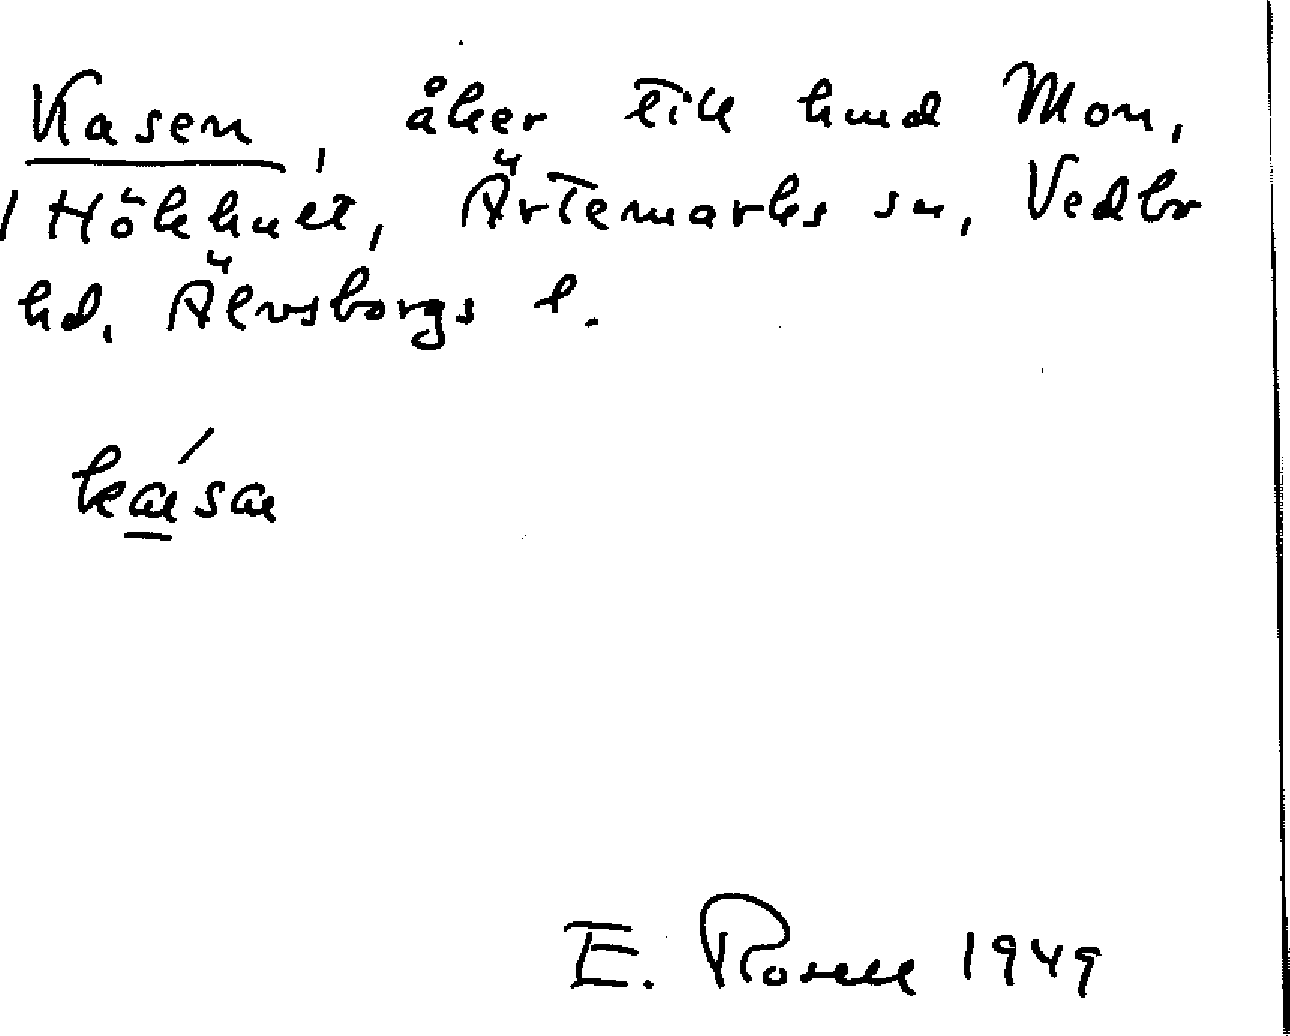 Kasen, åker till hmd Mon,
1 Hökhult, Ärtemarks sn, Vedbo
hd. Älvsborgs l.
ka´sa
E. Rosell 1949